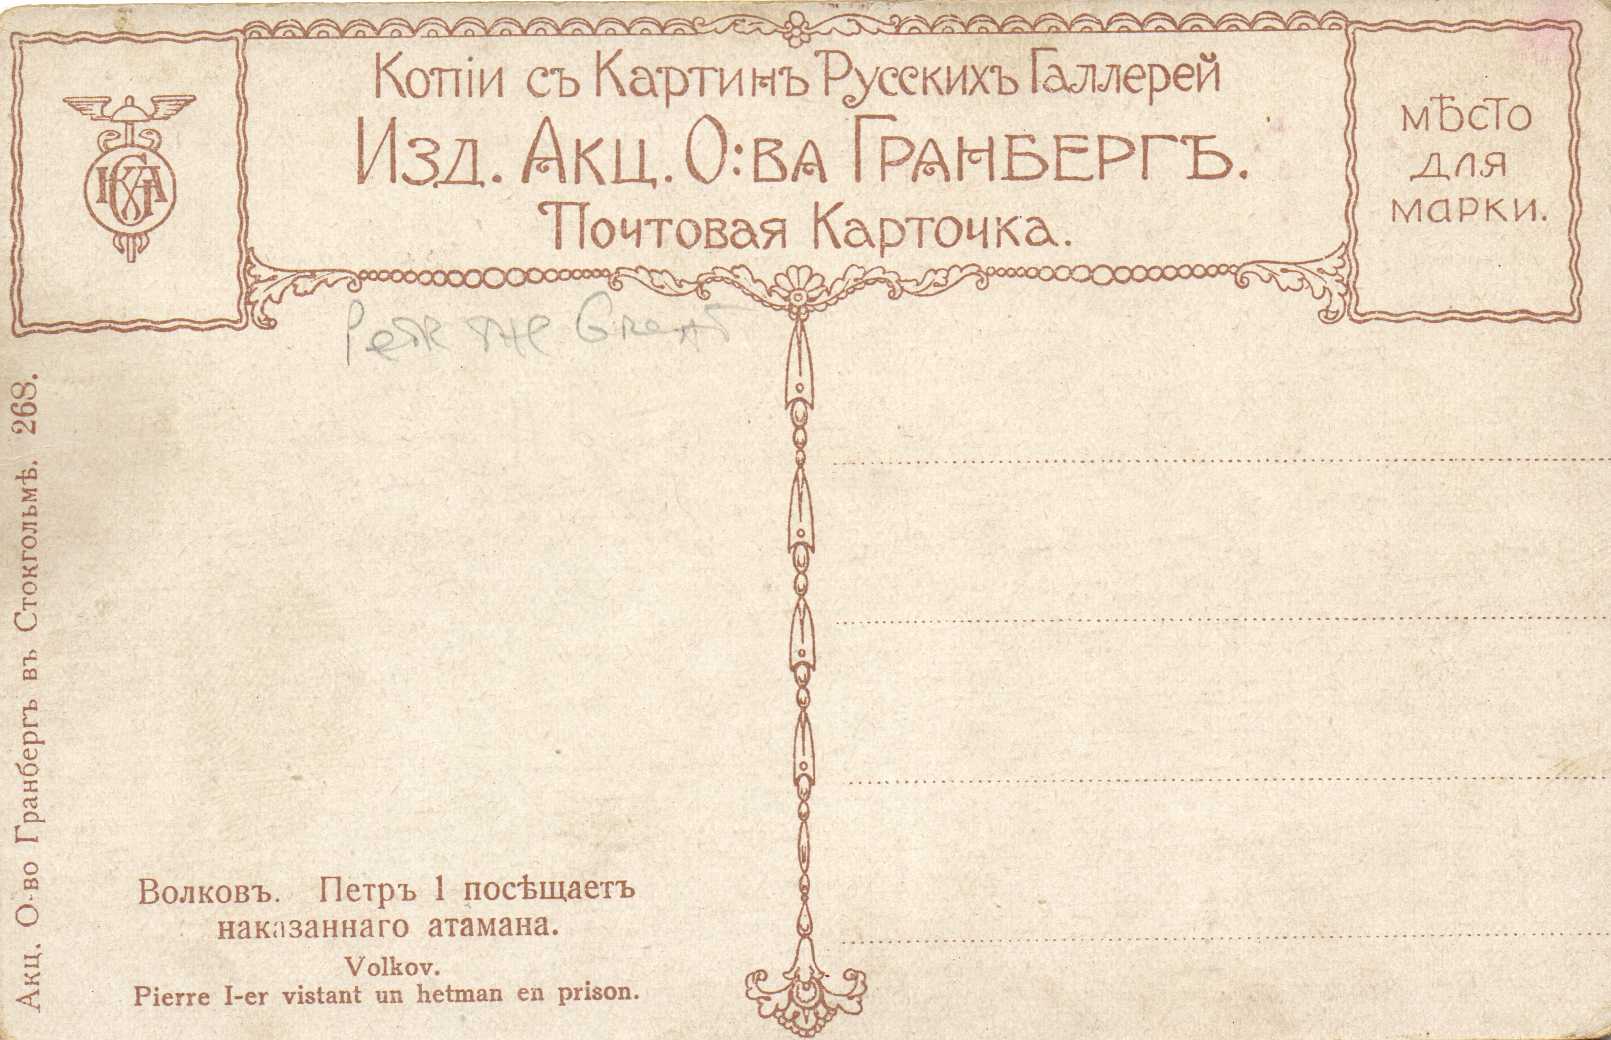 Копіи съ Картинъ Русскихъ Галлерей
Изд. Акц. О:ва Гранбергъ.
Почтовая Карточка.
мѣсто
для
марки.
Peter the Great
Акц. О-во Гранбергъ въ Стокгольмѣ. 268.
Волковъ. Петръ 1 посѣщаетъ
наказаннаго атамана.
Volkov.
Pierre I-er vistant un hetman en prison.